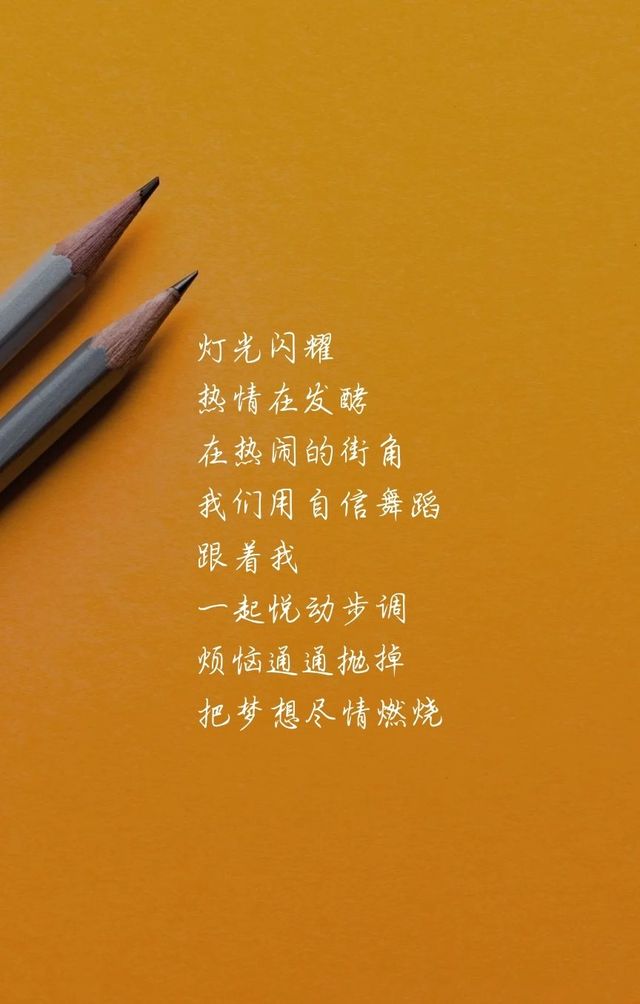 灯光闪耀
热情在发酵
在热闹的街角
我们用自信舞蹈
跟着我
一起悦动步调
烦恼通通抛掉
把梦想尽情燃烧